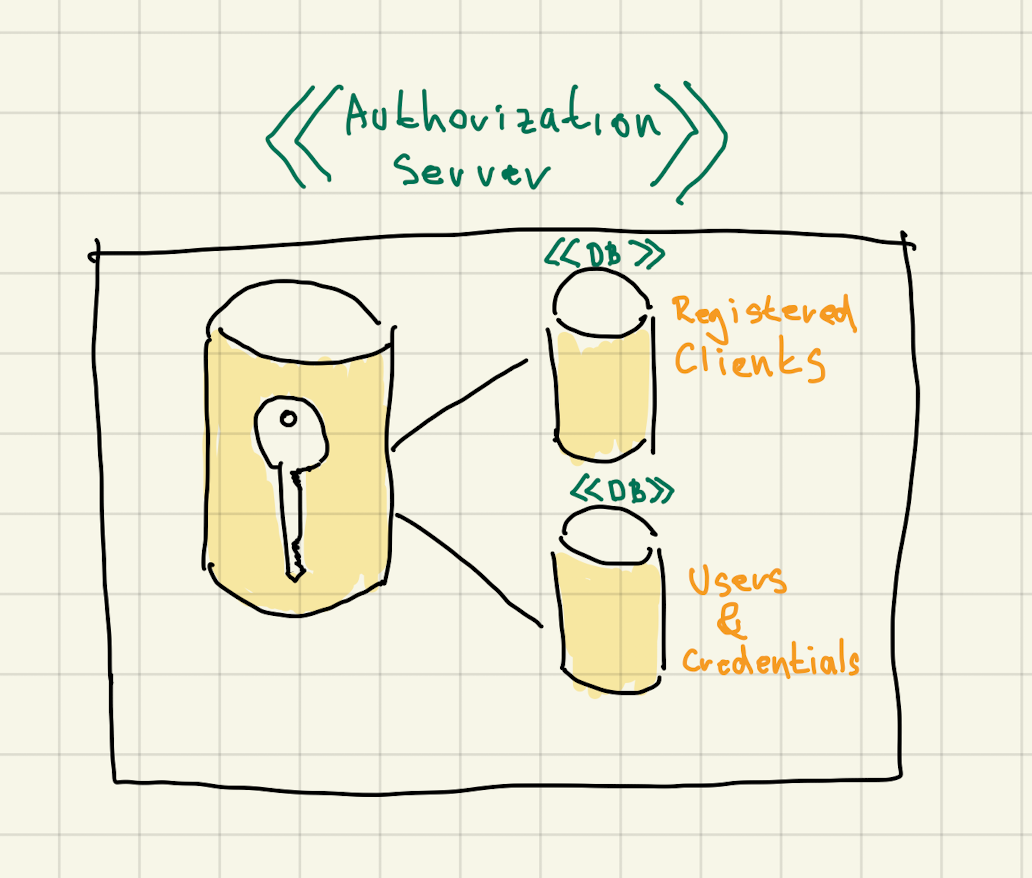 <<Authorization
Server>>
<<DB>>
Registered
Clients
<<DB>>
Users
&
Credentials